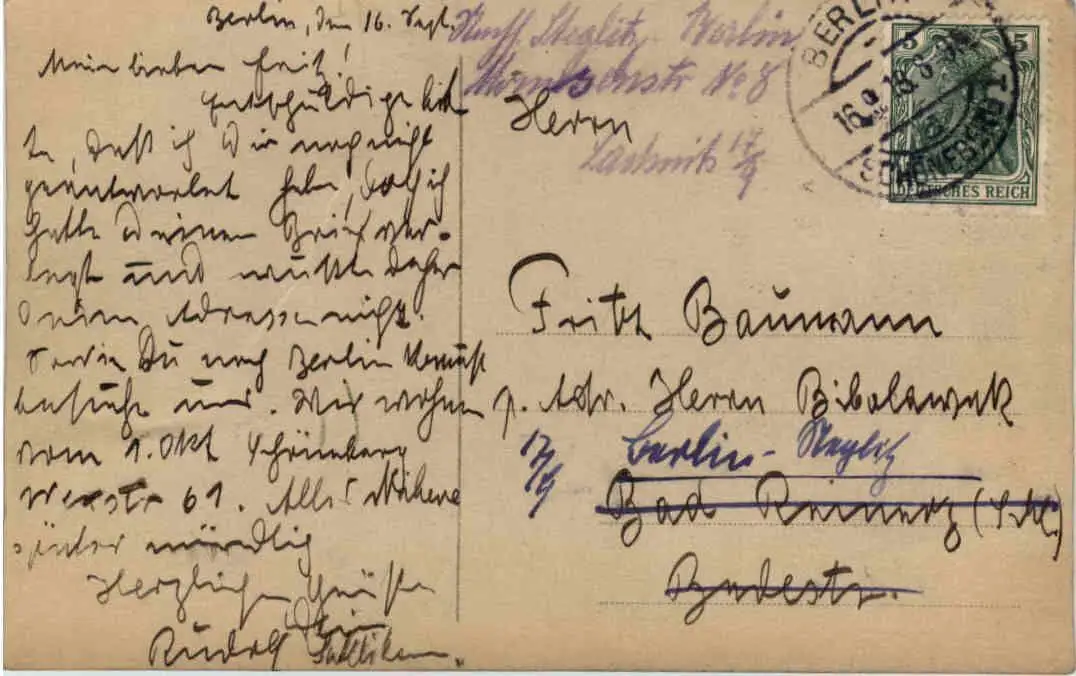 Berlin, den 16. Sept.
Mein lieber Fritz!
Entschuldige bit-
te, daß ich Dir noch nicht
geantwortet habe, doch ich
hatte Deinen Brief ver-
legt und wußte daher
Deine Adresse nicht.
Du nach Berlin kommst
besuche uns. Wir wohnen
vom 1. Okt Schöneberg
61. Alles Nähere
später mündlich
Herzliche Grüße
Dein
Rudolf
Steglitz Berlin
No 8
17/9
BERLIN
16.9.18.8-9N
SCHÖNEBERG 1
5 5
DEUTSCHES REICH
Herrn
Fritz Baumann
p. Adr. Herrn
17/9
Berlin-Steglitz
Bad Reinerz (Schl.)
Badestr.